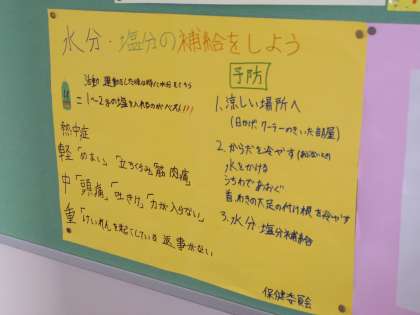 水分・塩分の補給をしよう
活動 運動をした後は特に水分をとろう
= 1~2%の塩を入れるのがベスト!!
熱中症
軽「めまい」「立ちくらみ」筋肉痛」
中「頭痛」「吐きけ」「力が入らない」
重「けいれん」を起こしている 返事がない
予防
1. 涼しい場所へ
(日かげ、クーラーのきいた部屋)
2. からだを冷やす
水をかける
うちわであおぐ
首、わきの下、足の付け根を冷やす
3. 水分 塩分補給
保健委員会